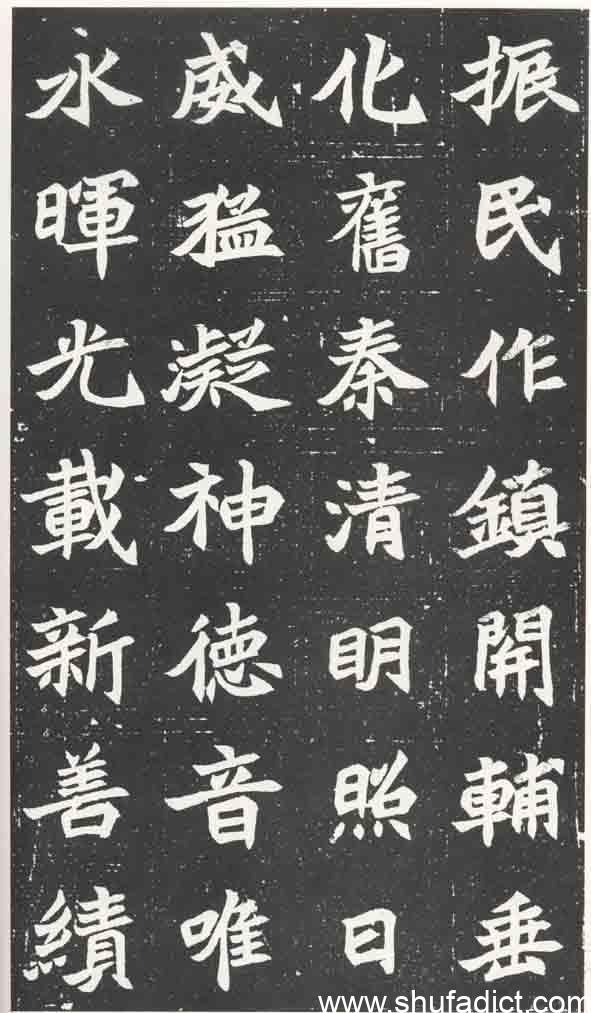 振民作鎮開輔垂
化舊秦清明照日
威猛凝神徳音唯
永暉光載新善績
www.shufadict.com